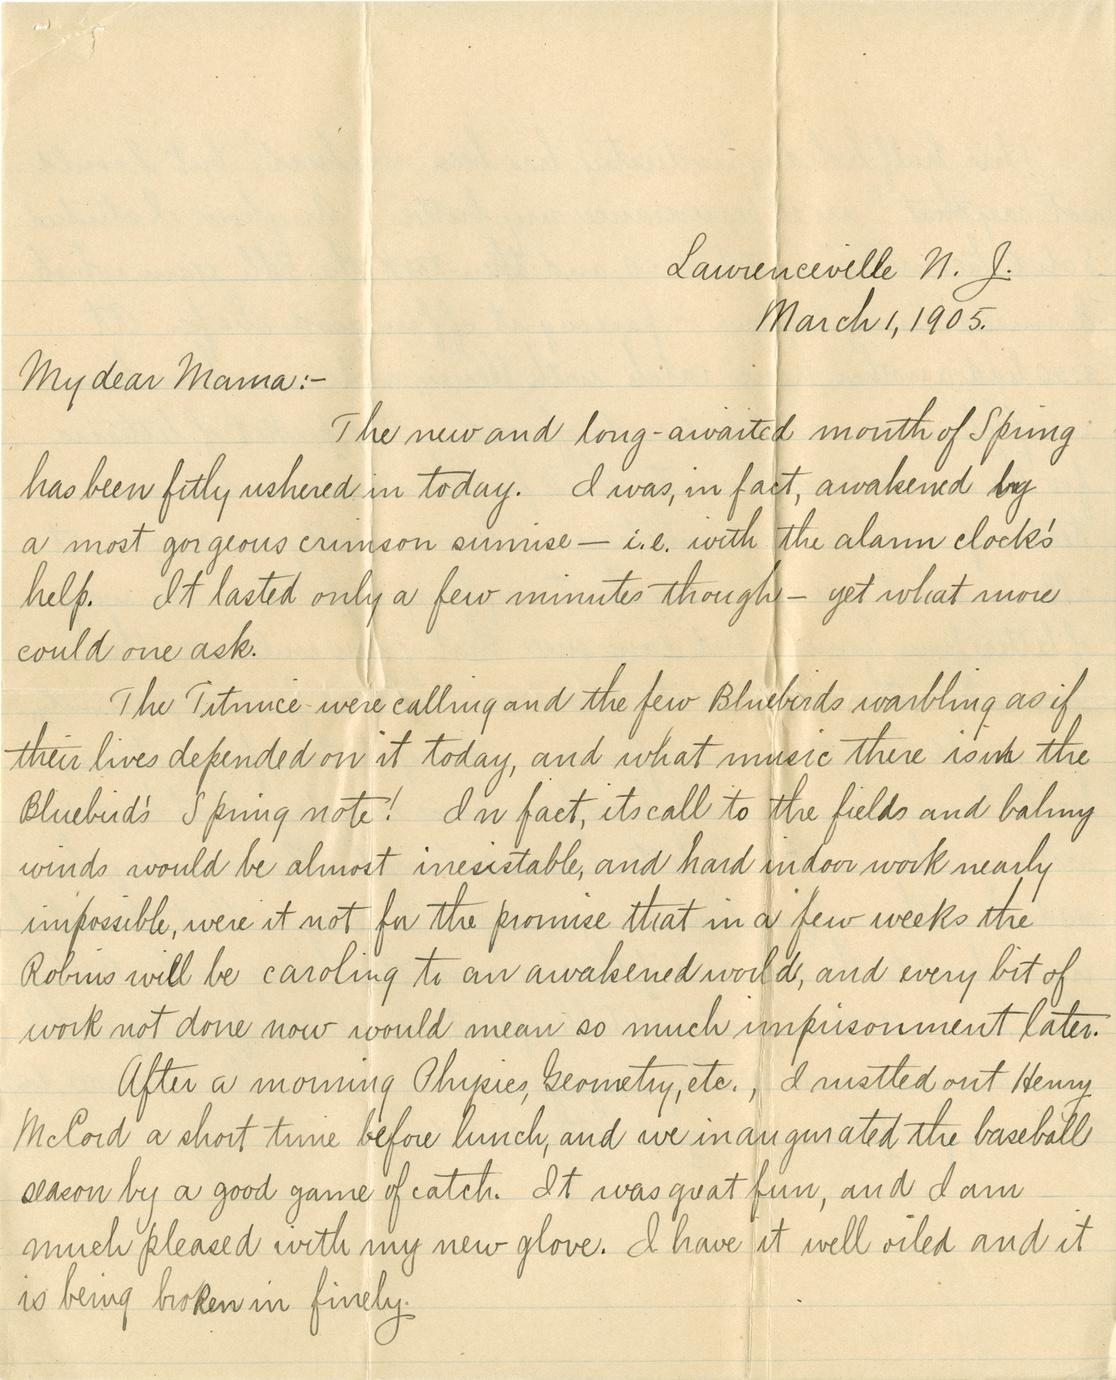 Lawrenceville N. J.
March 1, 1905.
My dear Mama:-
The new and long-awaited month of Spring
has been fitly ushered in today. I was, in fact, awakened by
a most gorgeous crimson sunrise — i.e. with the alarm clock's
help. It lasted only a few minutes though — yet what more
could one ask.
The Titmice were calling and the few Bluebirds warbling as if
their lives depended on it today, and what music there is in the
Bluebird's Spring note! In fact, its call to the fields and balmy
winds would be almost irresistable, and hard indoor work nearly
impossible, were it not for the promise that in a few weeks the
Robins will be caroling to an awakened world, and every bit of
work not done now would mean so much imprisonment later.
After a morning Physics, Geometry, etc., I rustled out Henry
McCord a short time before lunch, and we inaugurated the baseball
season by a good game of catch. It was great fun, and I am
much pleased with my new glove. I have it well oiled and it
is being broken in finely.